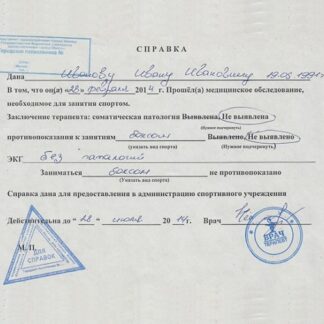 Городская поликлиника №
СПРАВКА
Дана Иванову Ивану Ивановичу
В том, что он(а) «28» февраля 2014 г. Прошёл(а) медицинское обследование,
необходимое для занятия спортом.
Заключение терапевта: соматическая патология Выявлена, Не выявлена
(Нужное подчеркнуть)
противопоказания к занятиям боксом Выявлено, Не выявлено
(указать вид спорта) (Нужное подчеркнуть)
ЭКГ без патологий
Заниматься боксом не противопоказано
(Указать вид спорта)
Справка дана для предоставления в администрацию спортивного учреждения
Действительна до «28» июля 2014г. Врач
М. П.
ДЛЯ
СПРАВОК
ВРАЧ
ТЕРАПЕВТ